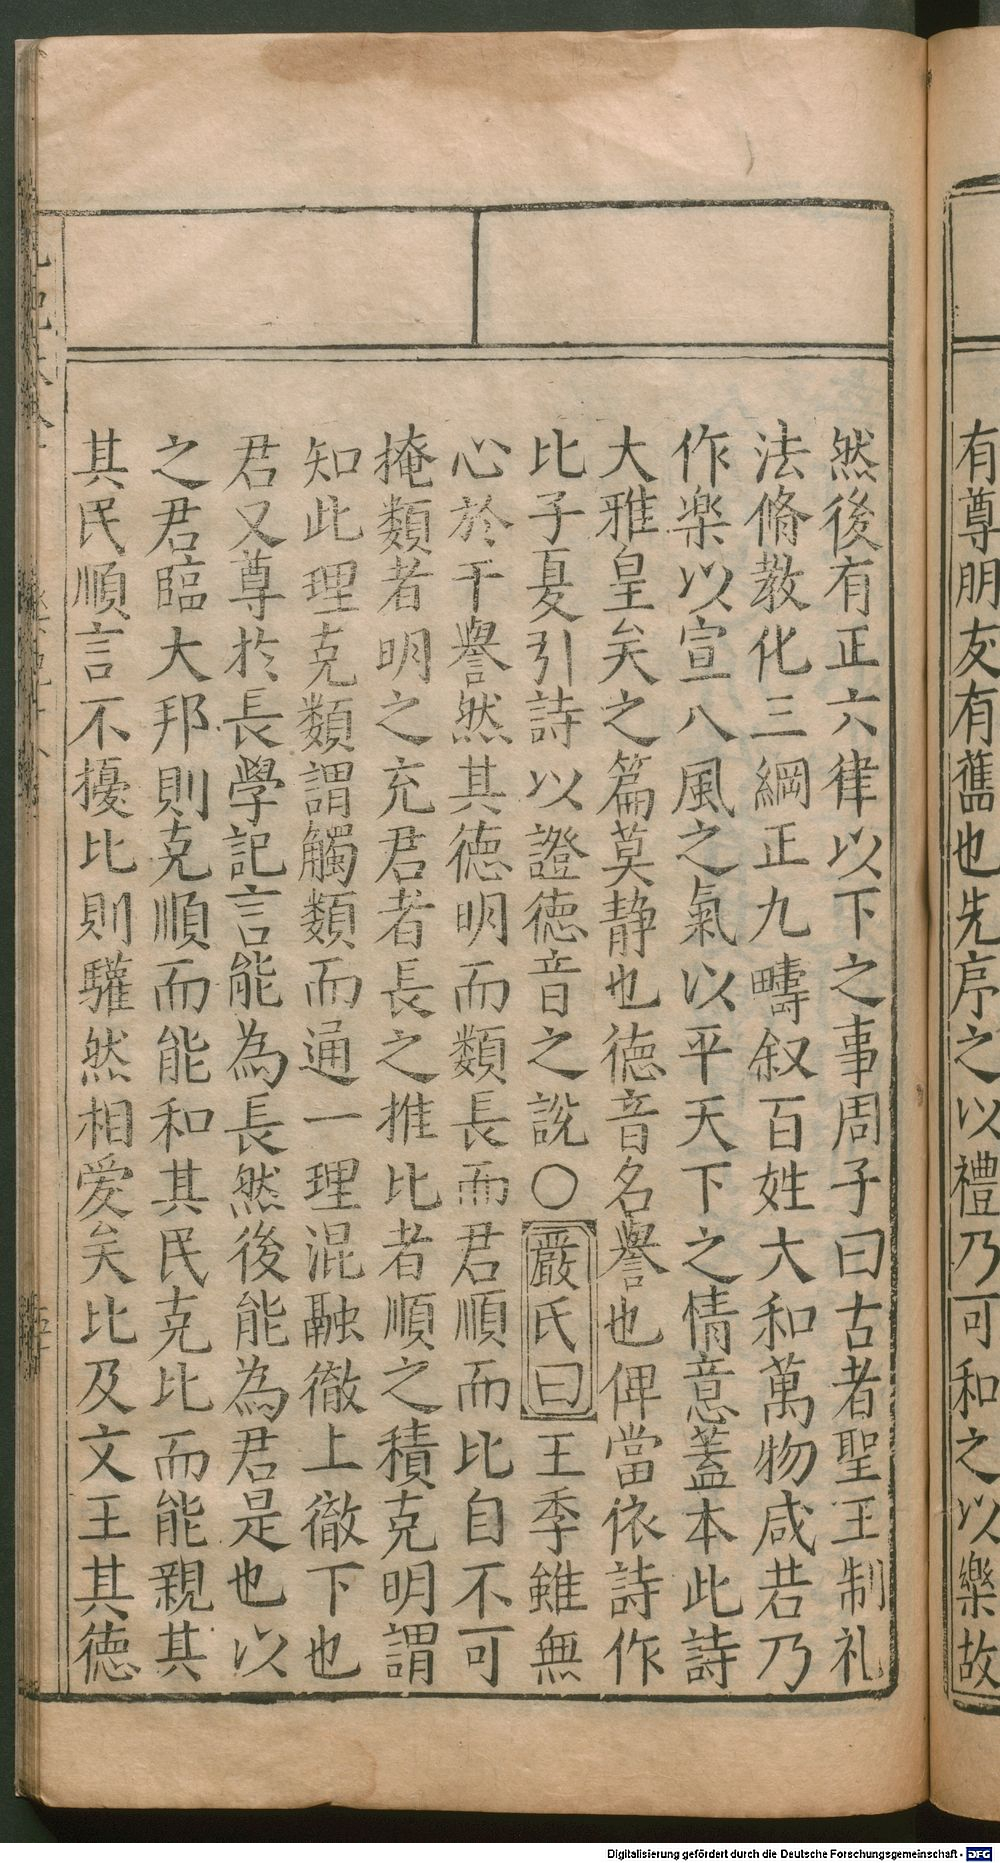 有尊朋友有舊也先序之以禮乃可和之以樂故
然後有正六律以下之事周子曰古者聖王制礼
法脩教化三綱正九疇叙百姓大和萬物咸若乃
作楽以宣八風之氣以平天下之情意蓋本此詩
大雅皇矣之篇莫静也徳音名譽也俾當依詩作
比子夏引詩以證徳音之說○嚴氏曰王季雖無
心於干譽然其徳明而類長而君順而比自不可
掩類者明之充君者長之推比者順之積克明謂
知此理克類謂觸類而通一理混融徹上徹下也
君又尊於長學記言能為長然後能為君是也以
之君臨大邦則克順而能和其民克比而能親其
其民順言不擾比則驩然相愛矣比及文王其徳
Digitalisierung gefördert durch die Deutsche Forschungsgemeinschaft - DFG